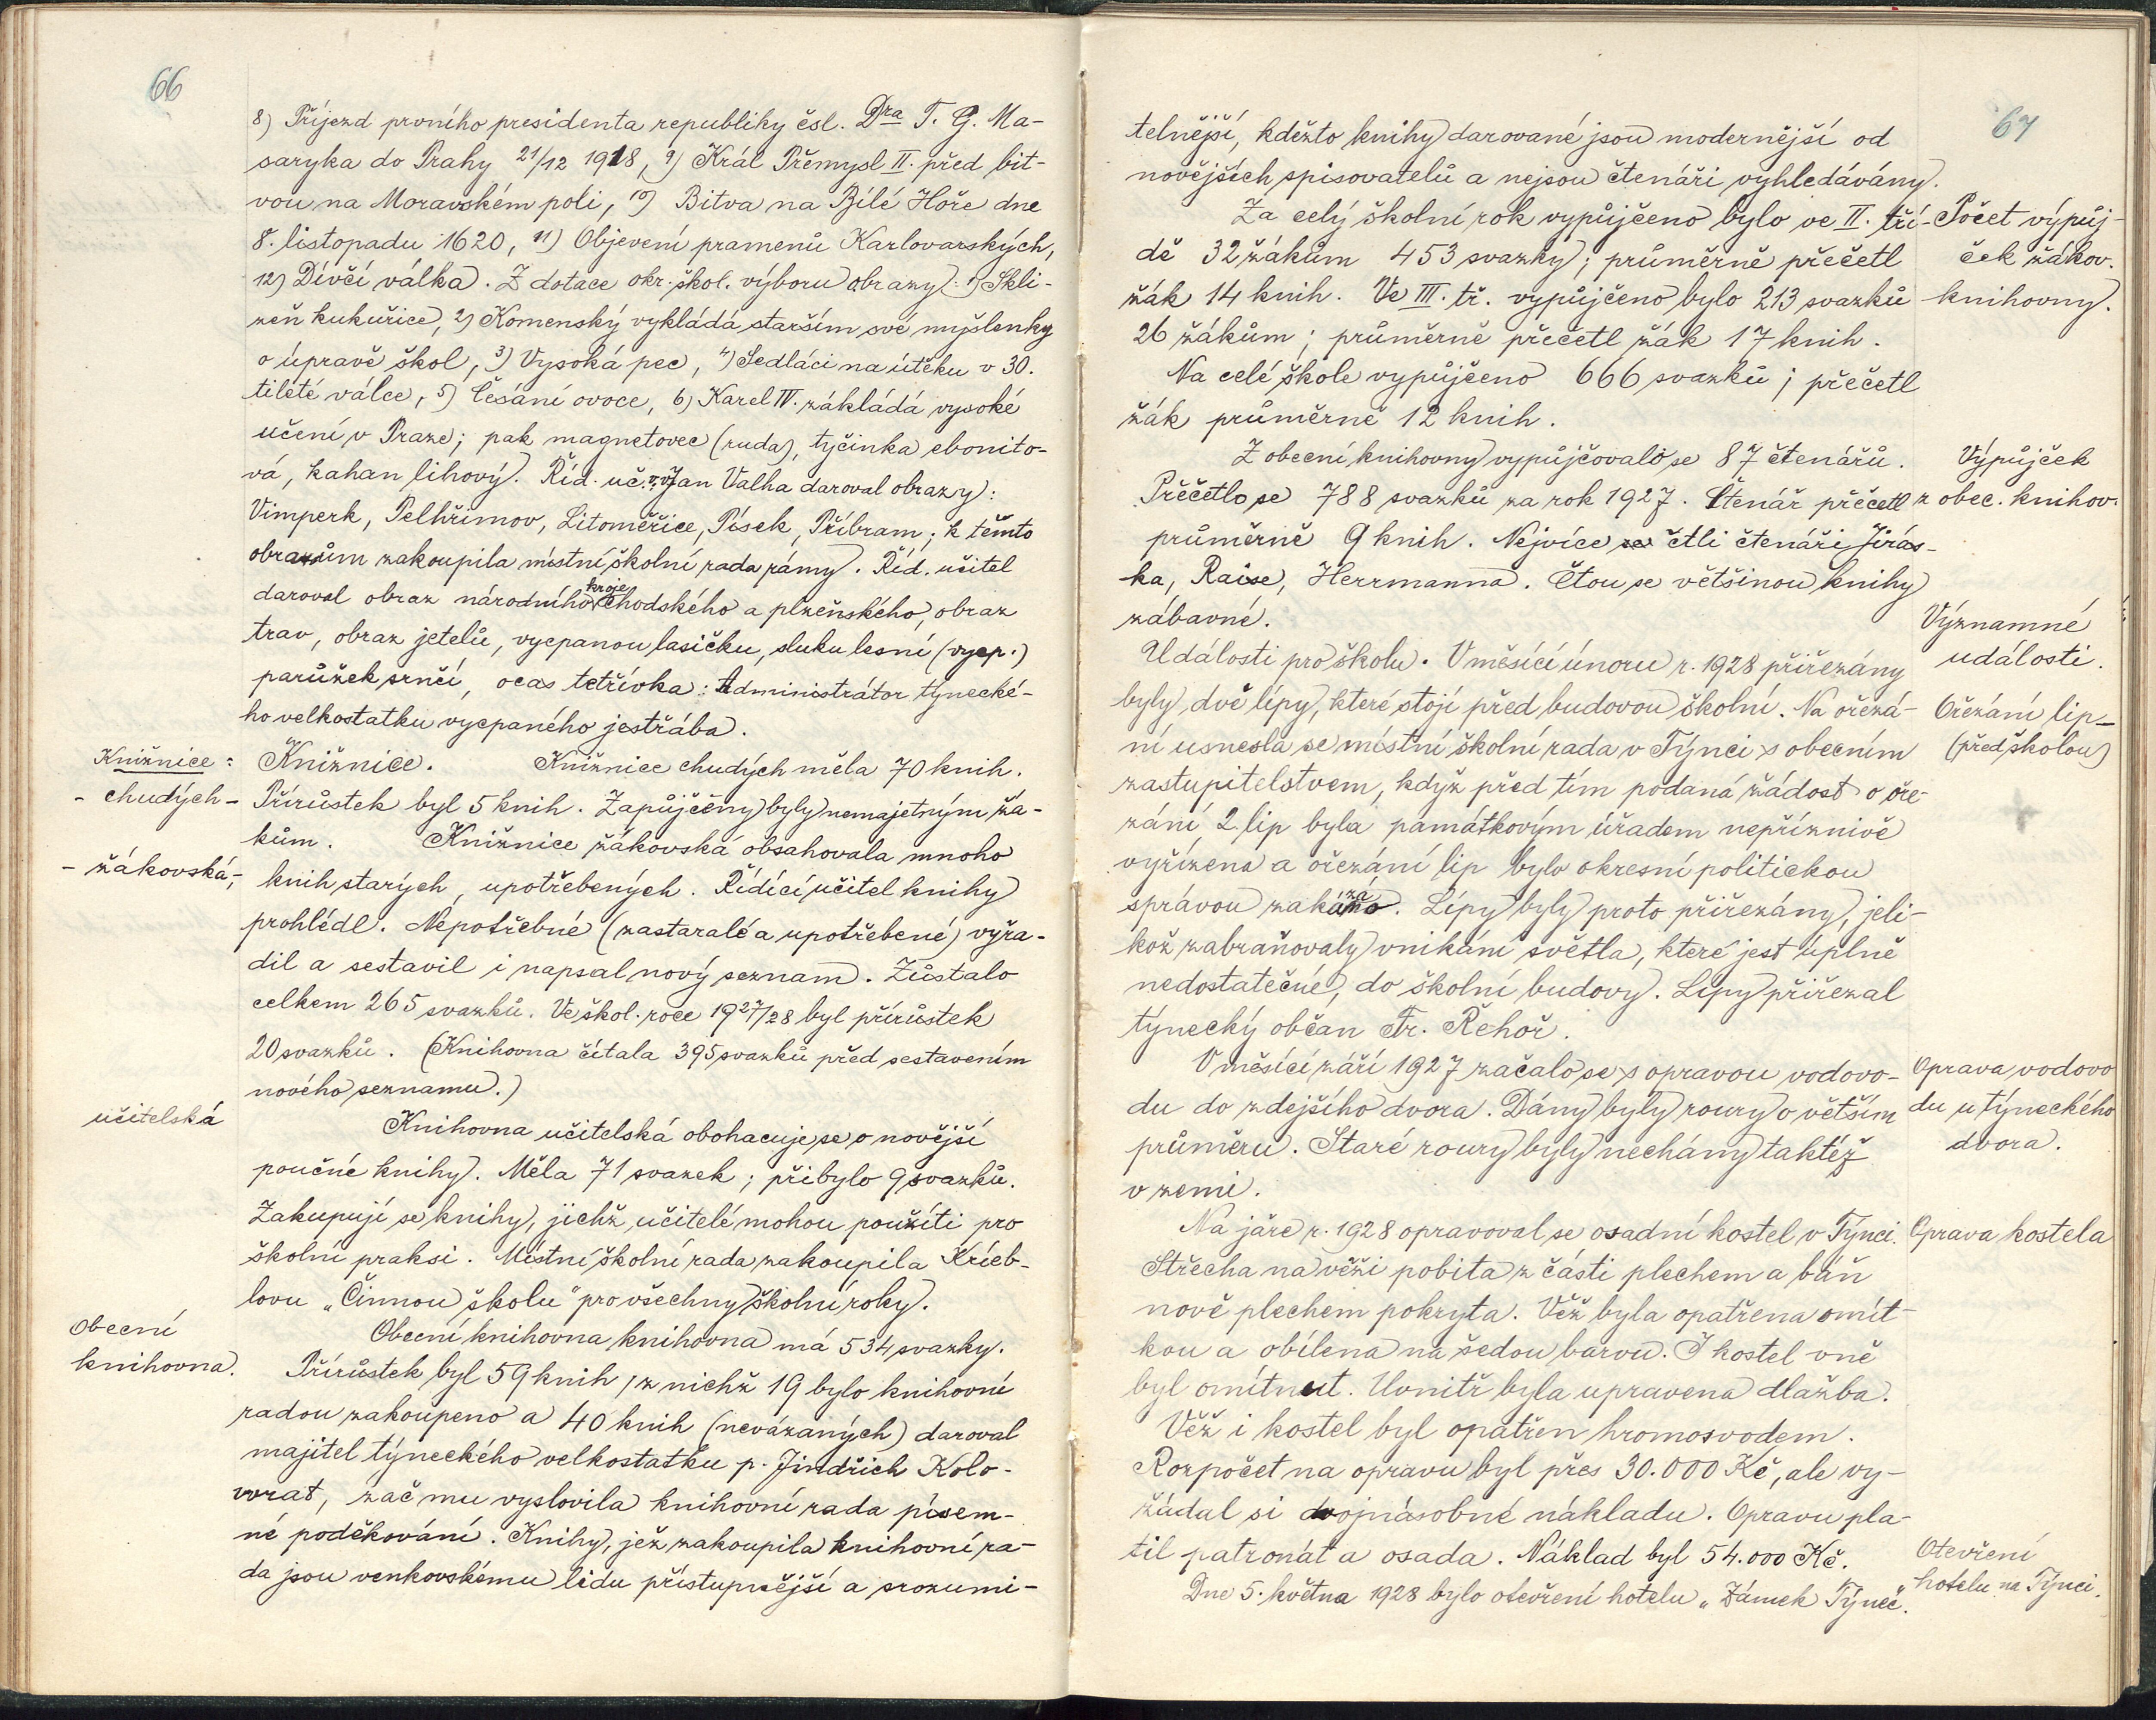 66
8) Příjezd prvního presidenta republiky čsl. Dra T. G. Ma-
saryka do Prahy 21/12 1918, 9) Král Přemysl II. před bit-
vou na Moravském poli, 10) Bitva na Bílé Hoře dne
8. listopadu 1620, 11) Objevení pramenů Karlovarských,
12) Dívčí válka. Z dotace okr. škol. výboru obrazy: 1) Skli-
zeň kukuřice, 2) Komenský vykládá starším své myšlenky
o úpravě škol, 3) Vysoká pec, 4) Sedláci na útěku v 30.
tileté válce, 5) Česání ovoce, 6) Karel IV. zákládá vysoké
učení v Praze; pak magnetovec (ruda), tyčinka ebonito-
vá, kahan lihový. Říd. uč. v. v. Jan Valha daroval obrazy:
Vimperk, Pelhřimov, Litoměřice, Písek, Příbram; k těmto
obrazům zakoupila místní školní rada rámy. Říd. učitel
daroval obraz národního kroje chodského a plzeňského, obraz
trav, obraz jetelů, vycpanou lasičku, sluku lesní (vycp.)
parůžek srnčí, ocas tetřívka: Administrátor týnecké-
ho velkostatku vycpaného jestřába.
Knižnice: Knižnice. Knižnice chudých měla 70 knih.
- chudých - Přírůstek byl 5 knih. Zapůjčeny byly nemajetným žá-
kům. Knižnice žákovská obsahovala mnoho
- žákovská, - knih starých, upotřebených. Řídící učitel knihy
prohlédl. Nepotřebné (zastaralé a upotřebené) vyřa-
dil a sestavil i napsal nový seznam. Zůstalo
celkem 265 svazků. Ve škol. roce 1927/28 byl přírůstek
20 svazků. (Knihovna čítala 395 svazků před sestavením
nového seznamu.)
učitelská Knihovna učitelská obohacuje se o novější
poučné knihy. Měla 71 svazek; přibylo 9 svazků.
Zakupují se knihy, jichž učitelé mohou použíti pro
školní praksi. Místní školní rada zakoupila Krieb-
lovu „Činnou školu" pro všechny školní roky.
Obecní Obecní knihovna knihovna má 534 svazky.
knihovna. Přírůstek byl 59 knih, z nichž 19 bylo knihovní
radou zakoupeno a 40 knih (nevázaných) daroval
majitel týneckého velkostatku p. Jindřich Kolo-
vrat, zač mu vyslovila knihovní rada písem-
né poděkování. Knihy, jež zakoupila knihovní ra-
da jsou venkovskému lidu přístupnější a srozumi-
67
telnější, kdežto knihy darované jsou modernější od
novějších spisovatelů a nejsou čtenáři vyhledávány.
Za celý školní rok vypůjčeno bylo ve II. tří- Počet výpůj-
dě 32 žákům 453 svazky; průměrně přečetl ček žákov.
žák 14 knih. Ve III. tř. vypůjčeno bylo 213 svazků knihovny.
26 žákům; průměrně přečetl žák 17 knih.
Na celé škole vypůjčeno 666 svazků; přečetl
žák průměrně 12 knih.
Z obecní knihovny vypůjčovalo se 87 čtenářů. Výpůjček
Přečetlo se 788 svazků za rok 1927. Čtenář přečetl z obec. knihov.
průměrně 9 knih. Nejvíce se četli čtenáři Jirás-
ka, Raise, Herrmanna. Čtou se většinou knihy
zábavné. Významné
Události pro školu. V měsíci únoru r. 1928 přiřezány události.
byly dvě lípy, které stojí před budovou školní. Na ořezá- Ořezání lip
ní usnesla se místní školní rada v Týnci s obecním (před školou)
zastupitelstvem, když před tím podaná žádost o oře-
zání 2 lip byla památkovým úřadem nepříznivě
vyřízena a ořezání lip bylo okresní politickou
správou zakázáno. Lípy byly proto přiřezány, jeli-
kož zabraňovaly vnikání světla, které jest úplně
nedostatečné, do školní budovy. Lípy přiřezal
týnecký občan Fr. Řehoř.
V měsíci září 1927 začalo se s opravou vodovo- Oprava vodovo
du do zdejšího dvora. Dány byly roury o větším du u týneckého
průměru. Staré roury byly nechány taktéž dvora.
v zemi.
Na jaře r. 1928 opravoval se osadní kostel v Týnci. Oprava kostela
Střecha na věži pobita z části plechem a báň
nově plechem pokryta. Věž byla opatřena omít-
kou a obílena na šedou barvu. I kostel vně
byl omítnut. Uvnitř byla upravena dlažba.
Věž i kostel byl opatřen hromosvodem.
Rozpočet na opravu byl přes 30.000 Kč, ale vy-
žádal si dvojnásobné nákladu. Opravu pla-
til patronát a osada. Náklad byl 54.000 Kč. Otevření
Dne 5. května 1928 bylo otevření hotelu „Zámek Týnec". hotelu na Týnci.